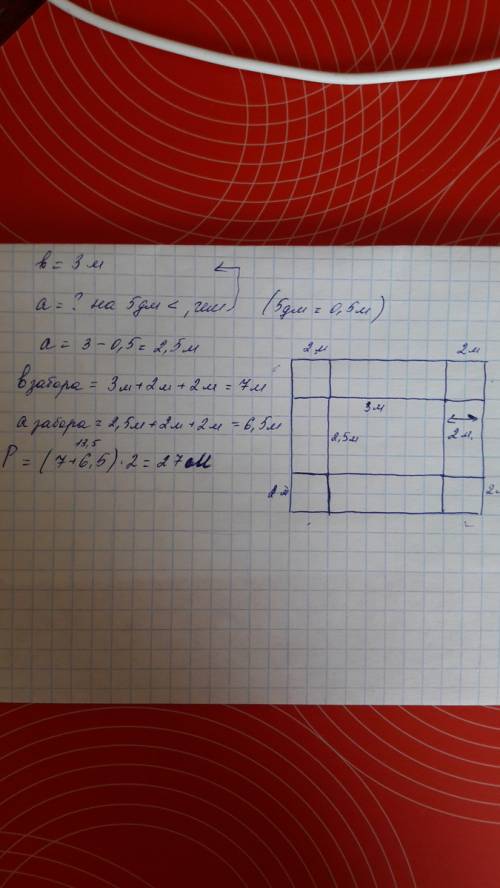 b = 3 м
a = ? на 5дм <, чем (5дм = 0,5м)
a = 3 - 0,5 = 2,5м
b забора = 3м + 2м + 2м = 7м
a забора = 2,5м + 2м + 2м = 6,5м
13,5
P = (7+6,5) · 2 = 27 м
2м 2м
3м
2,5м 2м.
2м